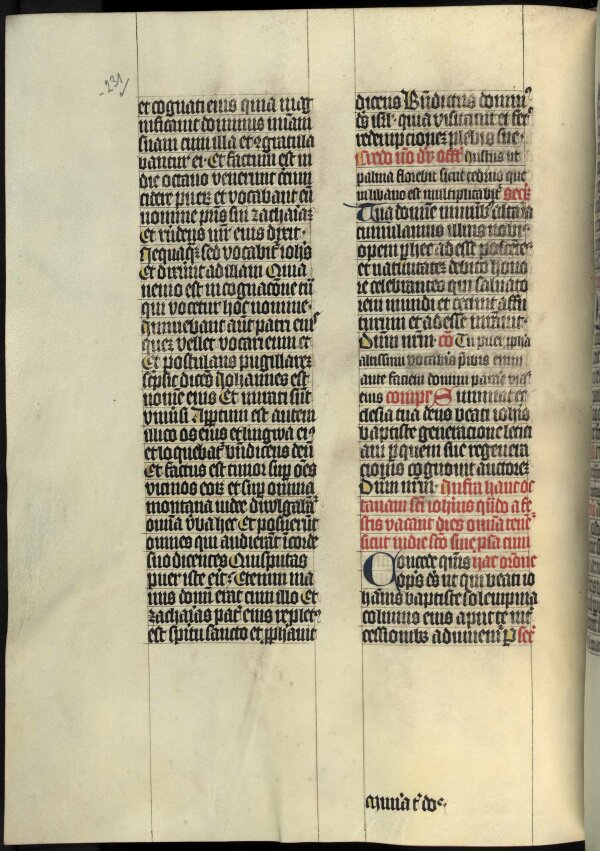 231
et cognati eius quia mag
nificauit dominus miam
suam cum illa et ↄgratula
bantur ei· Et factum est in
die octauo venerunt circū
cidere pueꝝ et vocabant eū
nomine pris sui zachariaꝝ
Et rn̄dens mr̄ eius dixit·
Nequaꝗꝫ sed vocabit̉ ioh̄s
Et dixerūt ad illam Quia
nemo est in cognacōne tua
qui vocetur hoc nomine·
Innuebant aūt patri eius
quez vellet vocari eum et
Et postulans pugillareꝫ
scpsit dicēs Johannes est
nomē eius Et mirati sūt
vniūsi Apptum est autem
illico os eius et lingwa ei⁹
et loquebat̉ bn̄dicens deū
Et factus est timor sup oēs
vicinos eoꝝ et sup omnia
montana iudee diwlgabāt̉
omīa v̄ba hec Et posuerūt
omnes qui audierāt ī corde
suo dicentes Quis putas
puer iste erit· Etenim ma
nus domī erat cum illo Et
zacharias pat̉ eius replet⁹
est spiritu sancto et ꝓphauit
dicens Bn̄dictus domin⁹
dꝫ isrl· quia visitauit et fec̄
redempcionez plebis sue·
Credo nō dr̄ offr̄ Iustus ut
palma florebit sicut cedrus que
in libano est multiplicabit̉ Secꝝ
Tua domine munīb⁹ altaria
cumulamus illius natiui
opem
et natiuitatez debito hono
re celebrantes qui saluato
rem mundi et cecinit affu
turum et adesse mr̄auit·
Dnm̄ nr̄m· cō Tu puer ꝓpha
altissimi vocabis ꝑibis enim
ante faciem domini parare vias
eius compꝉ Sumat ec
clesia tua deus beati ioh̄is
baptiste generacione leticī
am ꝑ quem sue regenera
cionis cognouit auctoreꝫ
Dnm̄ nr̄m· Infra hanc oc
tauam sc̄i ioh̄nis qn̄do a fe
stis vacant dies omīa tene⁹
sicut in die sc̄o sine ꝓsa cum
Concede qm̄s hac or̄one
opꝫ dꝫ ut qui beati io
hannis baptiste solempnia
colimus eius aput te int̉
cessionibꝫ adiuuem̄ Ꝑ sec̄